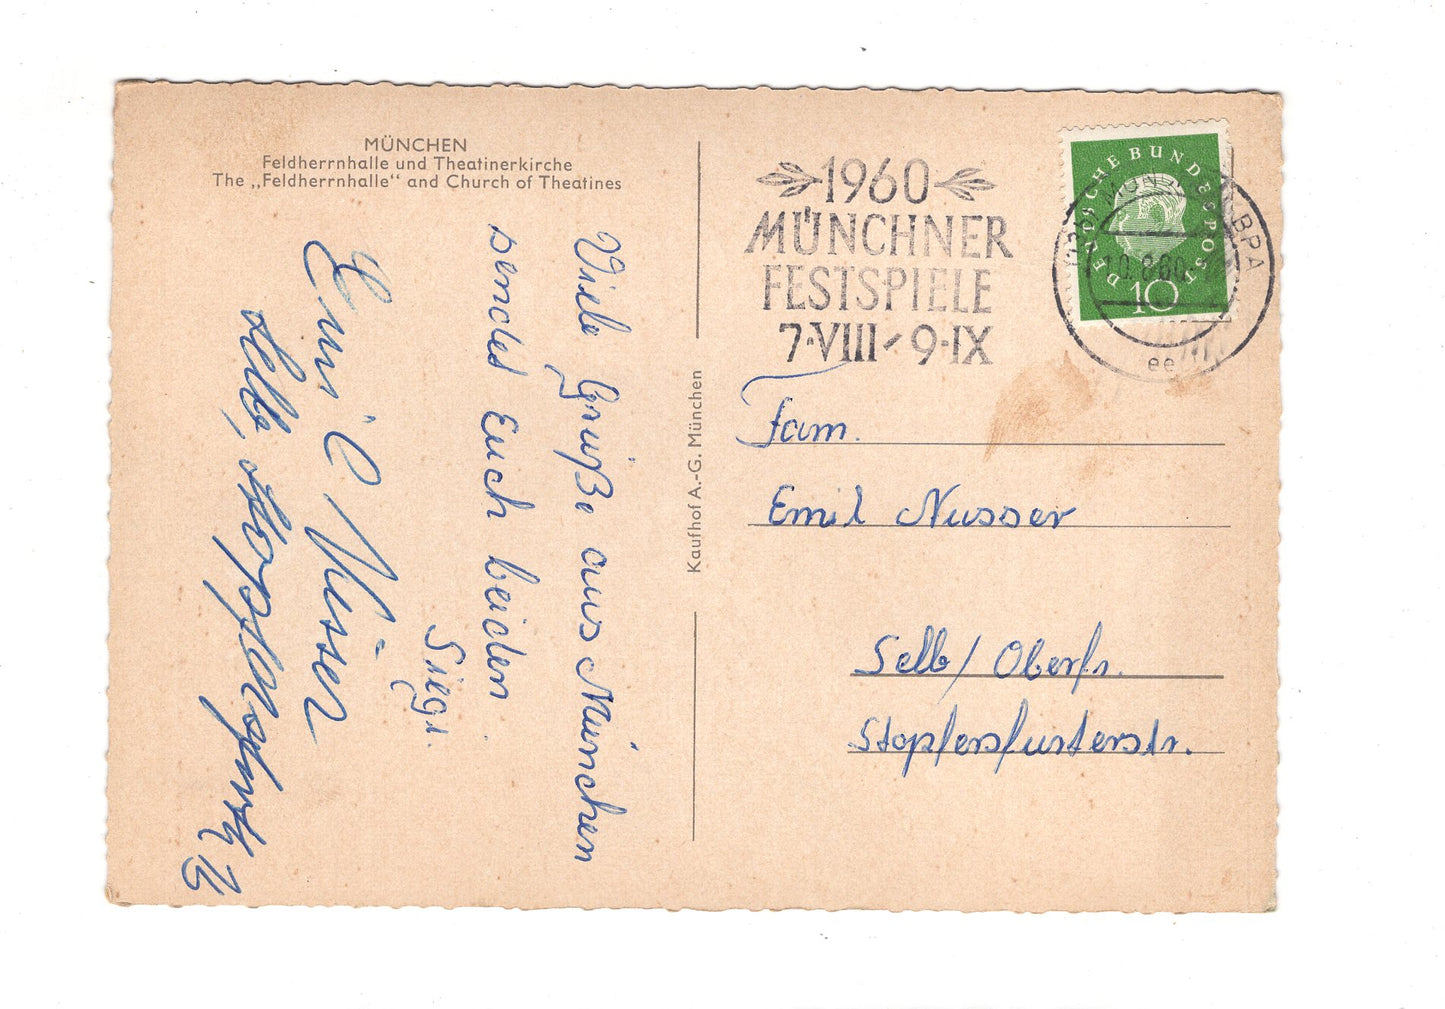 MÜNCHEN
Feldherrnhalle und Theatinerkirche
The „Feldherrnhalle“ and Church of Theatines
Viele Grüße aus München
sendet Euch beiden
Sigi.
Emil
Selb,
Kaufhof A.-G. München
1960
MÜNCHNER
FESTSPIELE
7·VIII - 9·IX
DEUTSCHE BUNDESPOST
10
10.8.60
BPA
ee
Fam.
Emil Nusser
Selb/Oberfr.
Stopfersfurterstr.